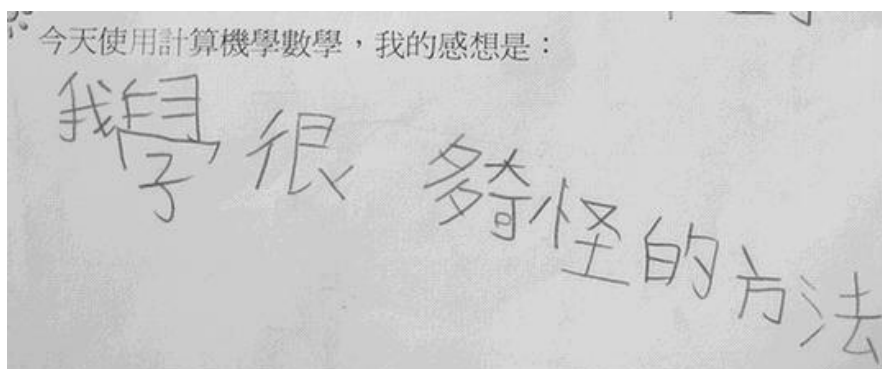 今天使用計算機學數學，我的感想是：
我學很多奇怪的方法